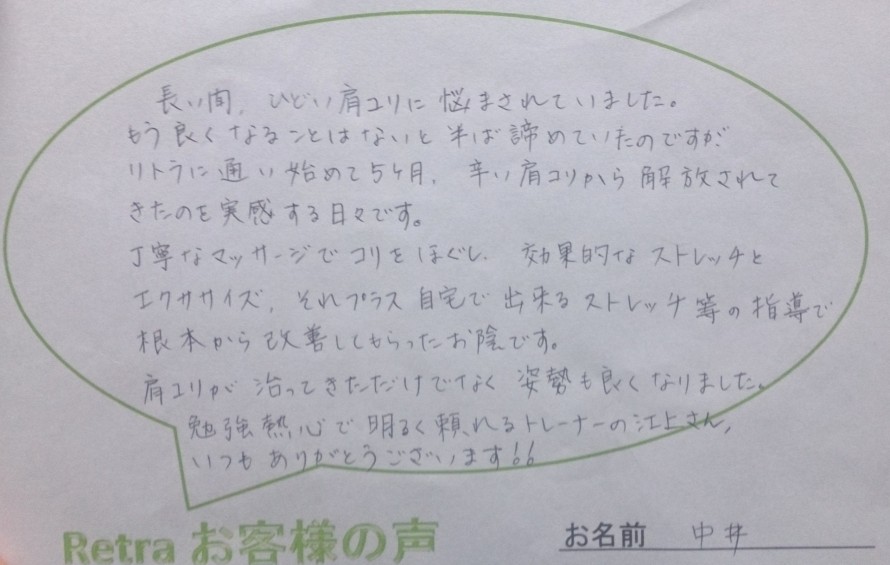 長い間、ひどい肩コリに悩まされていました。
もう良くなることはないと半ば諦めていたのですが、
リトラに通い始めて5ヶ月、辛い肩コリから解放されて
きたのを実感する日々です。
丁寧なマッサージでコリをほぐし、効果的なストレッチと
エクササイズ、それプラス自宅で出来るストレッチ等の指導で
根本から改善してもらったお陰です。
肩コリが治ってきただけでなく姿勢も良くなりました。
勉強熱心で明るく頼れるトレーナーの江上さん、
いつもありがとうございます!!
Retra お客様の声
お名前 中井